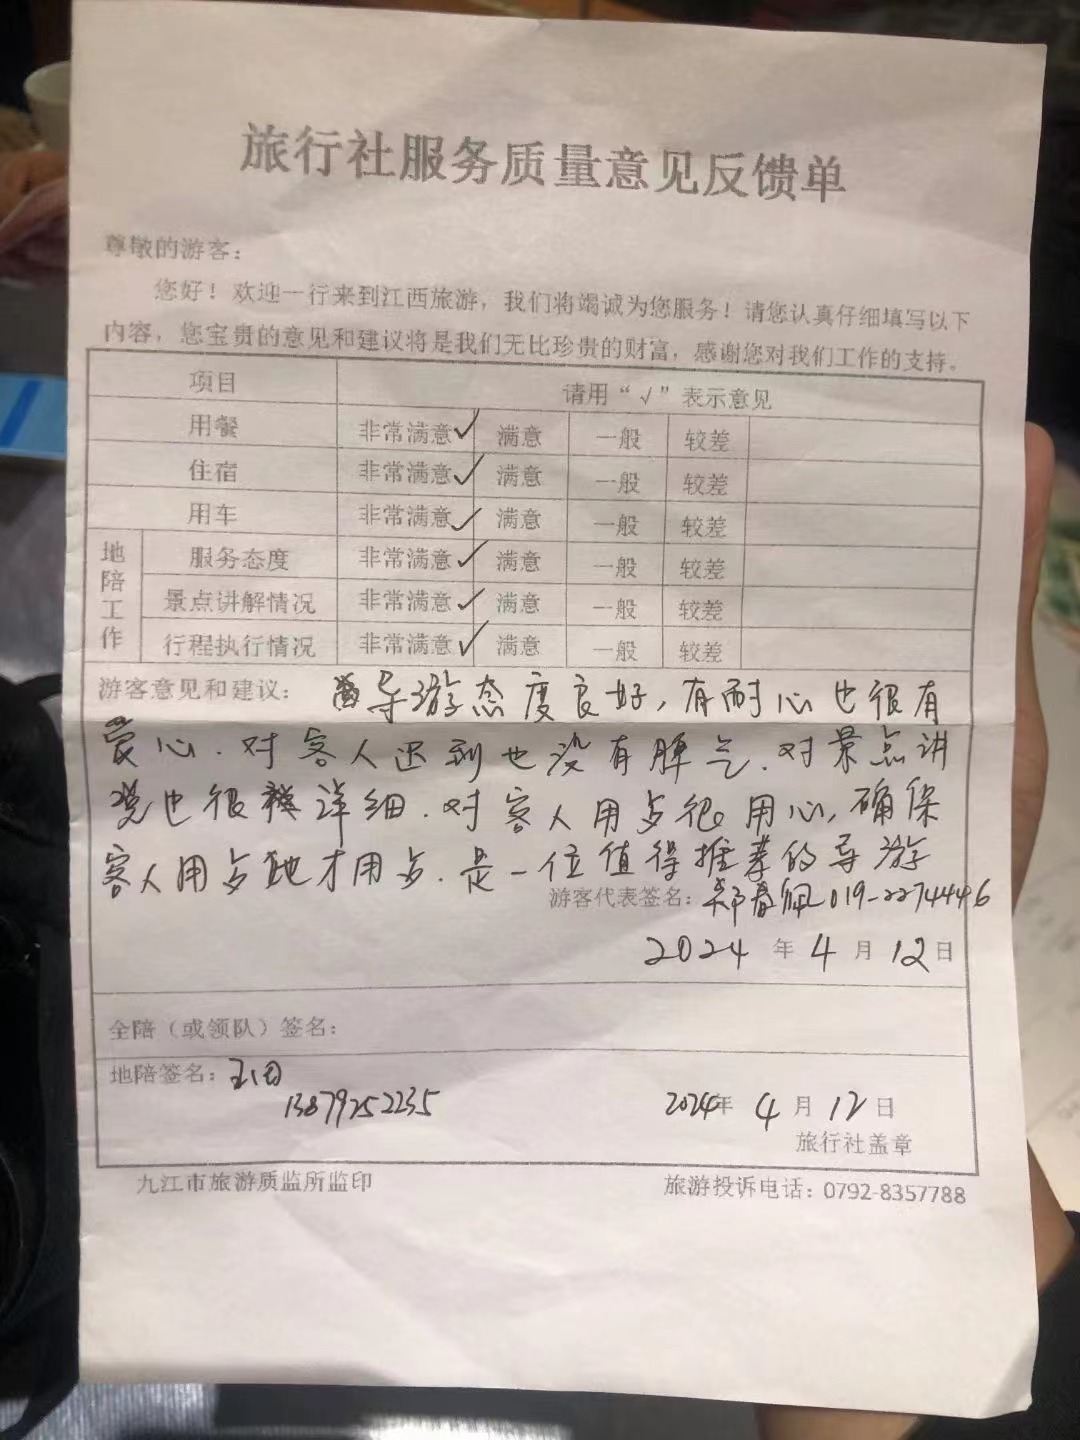 旅行社服务质量意见反馈单
尊敬的游客：
您好！欢迎一行来到江西旅游，我们将竭诚为您服务！请您认真仔细填写以下
内容，您宝贵的意见和建议将是我们无比珍贵的财富，感谢您对我们工作的支持。
项目 请用“√”表示意见
用餐 非常满意✓ 满意 一般 较差
住宿 非常满意✓ 满意 一般 较差
用车 非常满意✓ 满意 一般 较差
地陪工作 服务态度 非常满意✓ 满意 一般 较差
景点讲解情况 非常满意✓ 满意 一般 较差
行程执行情况 非常满意✓ 满意 一般 较差
游客意见和建议： 导游态度良好，有耐心也很有
爱心．对客人迟到也没有脾气．对景点讲
说也很详细．对客人用歺很用心，确保
客人用歺她才用歺．是一位值得推荐的导游
游客代表签名：郑春佩 019-22744496
2024 年 4 月 12 日
全陪（或领队）签名：
地陪签名：
13879252235 2024年 4 月 12 日
旅行社盖章
九江市旅游质监所监印 旅游投诉电话：0792-8357788